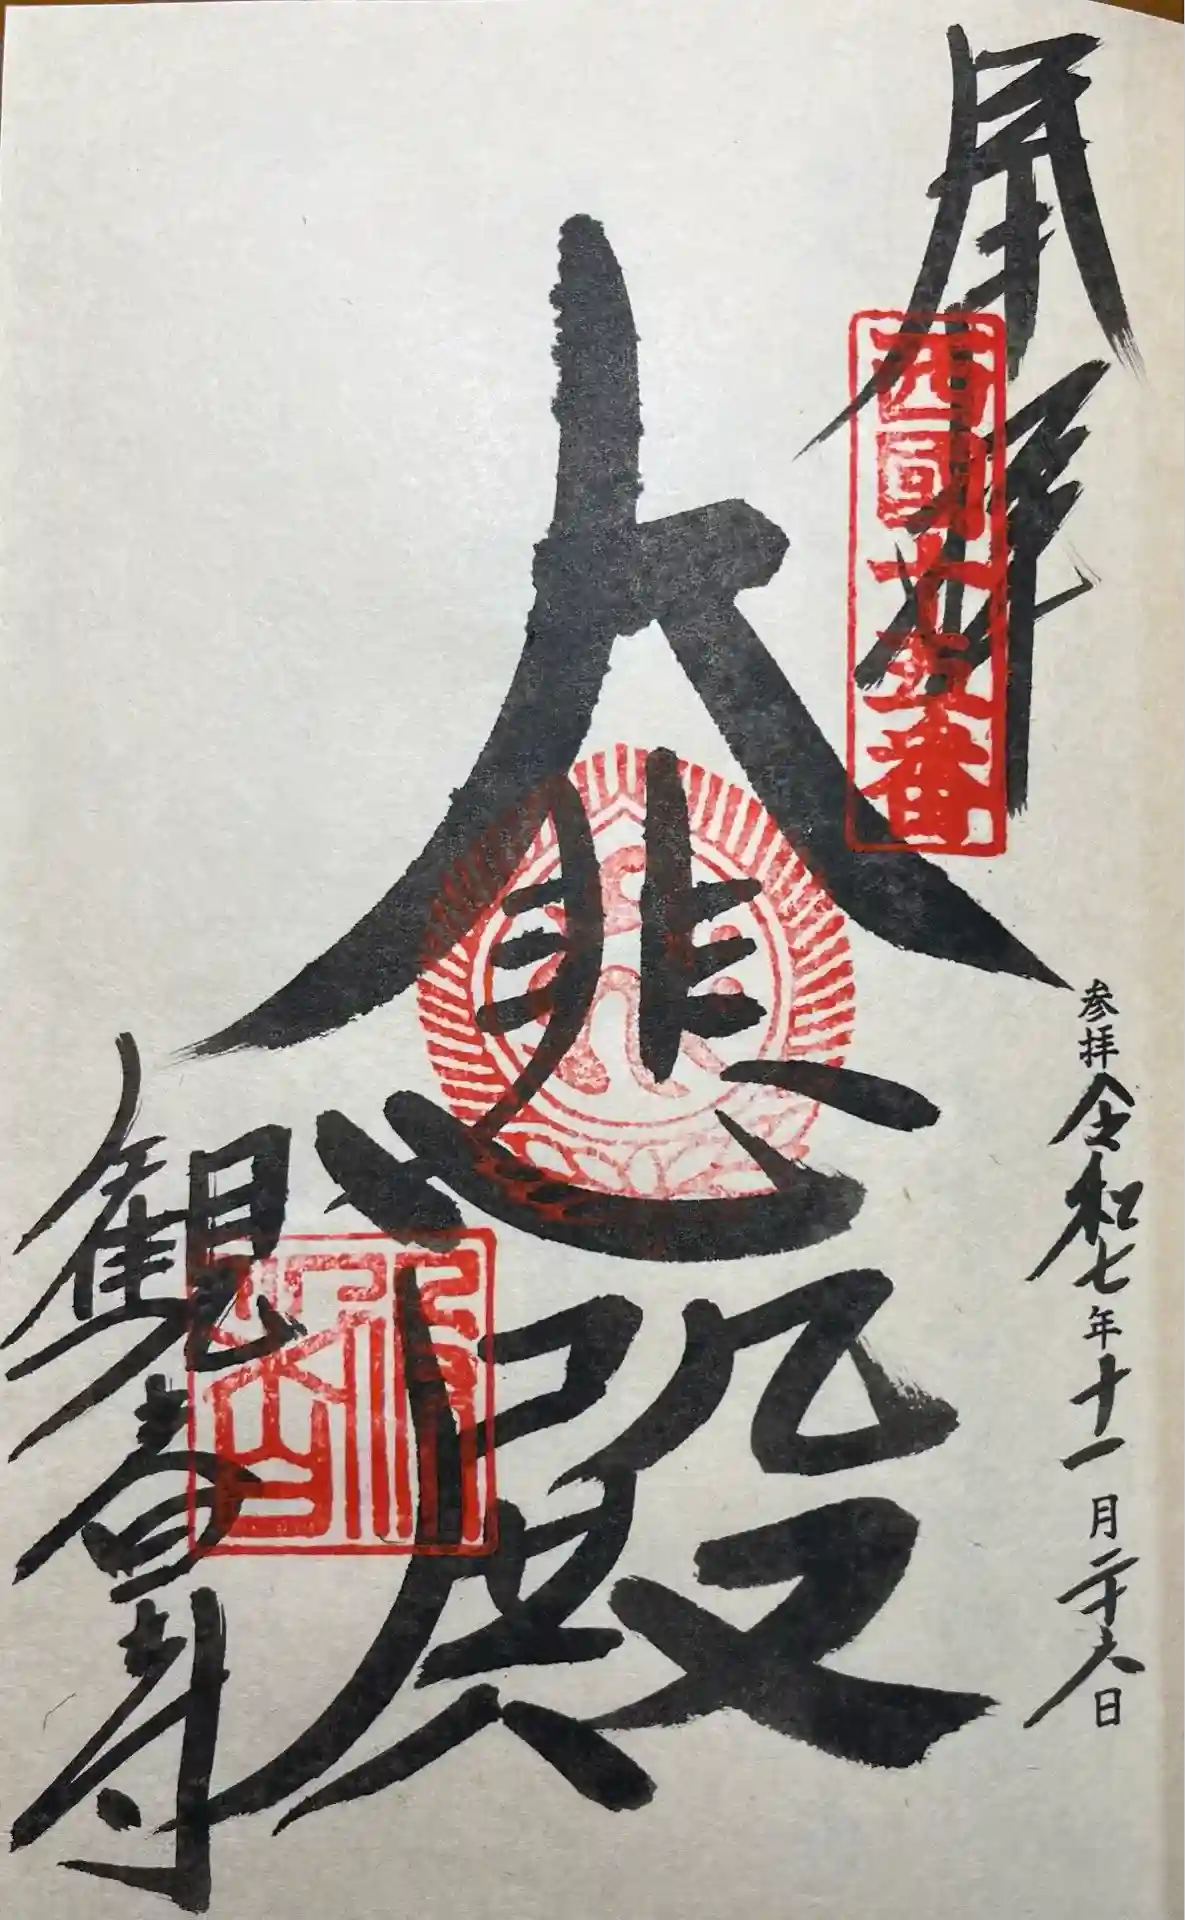 奉拝
西國十五番
参拝令和七年十一月二十六日
大悲殿
観音寺